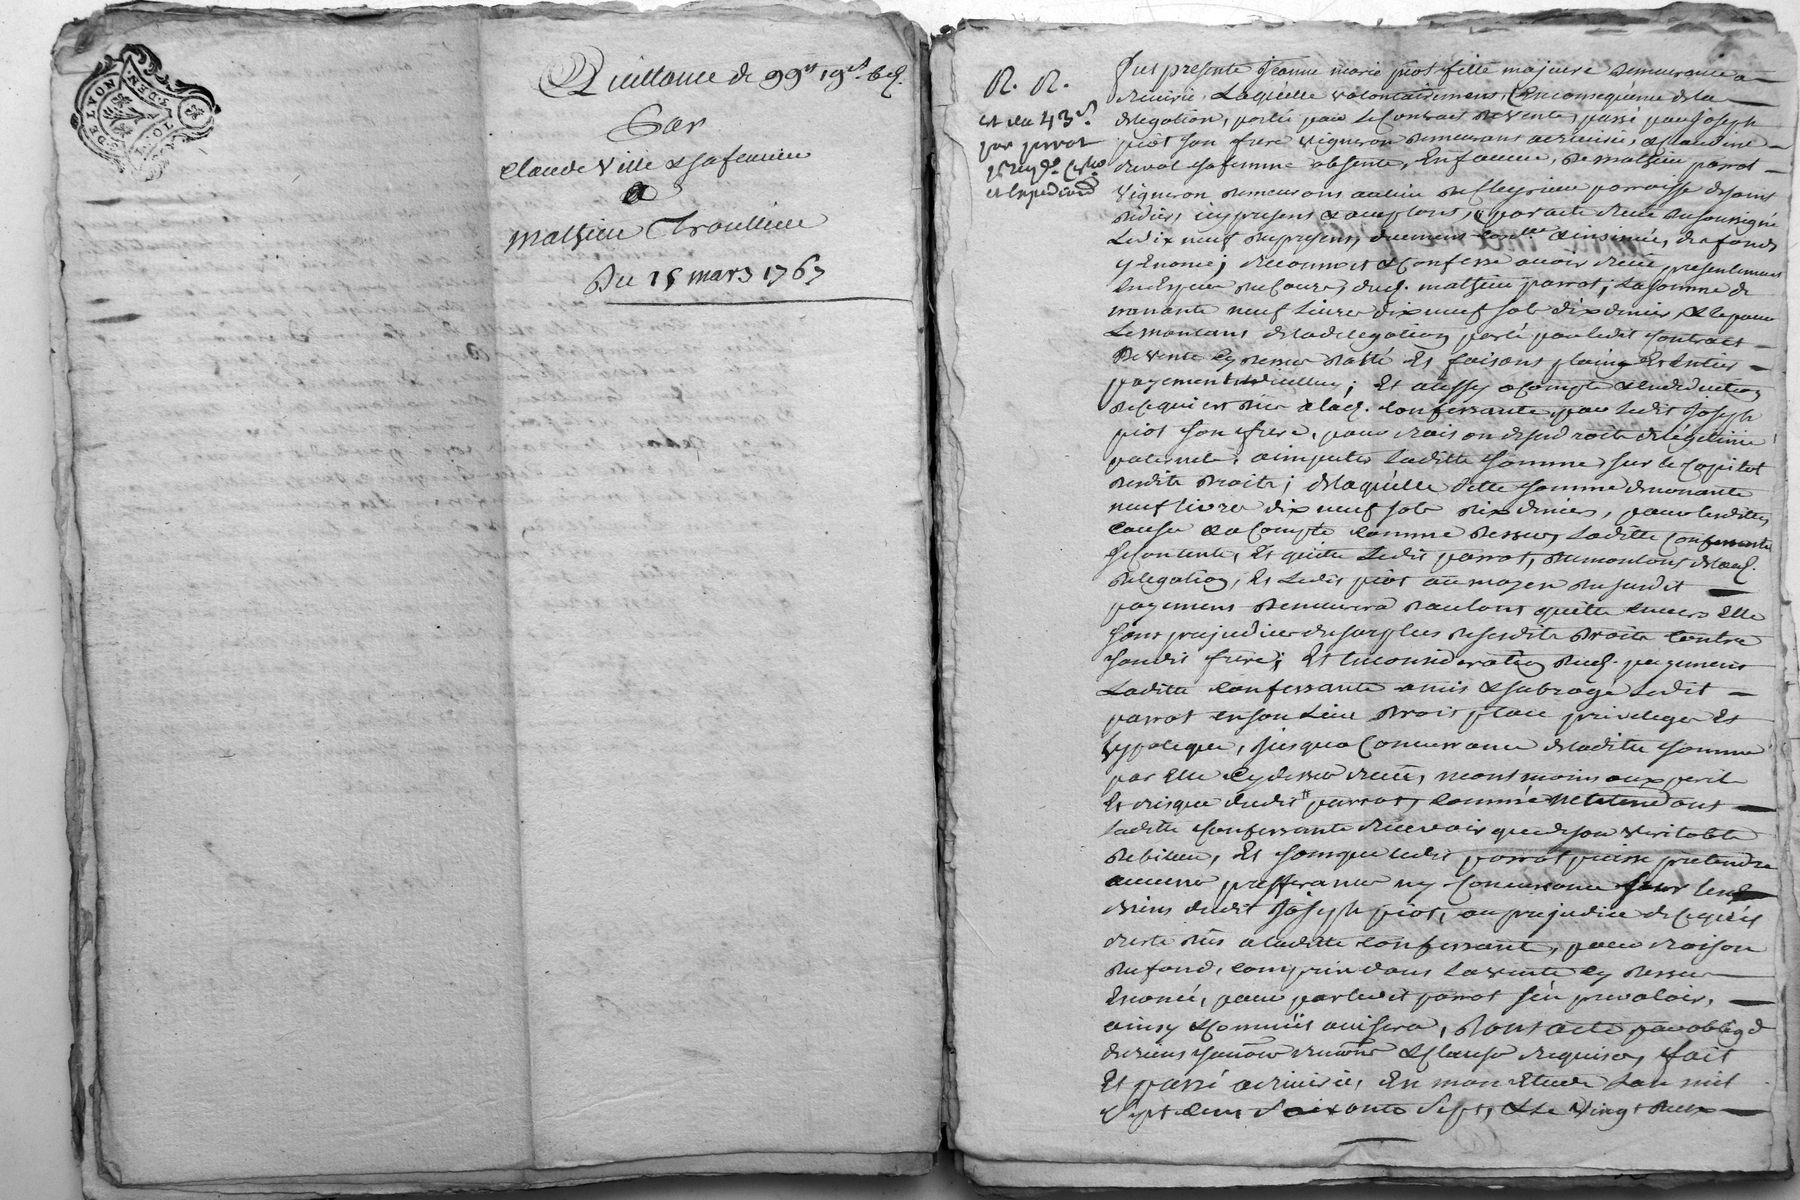 Quittance de 99ᵗᵗ 19ˢ 6ᵈ
Par
Claude Ville & sa femme
a
Mathieu Thoullieu
Du 15 mars 1767
R. R.
et du 43ˢ
par parrot
Fut presente Jeanne marie piot fille majeure demeurante a
Laquelle volontairement, En consequence de la
delegation, portée par Le Contract de Vente, passé par Joseph
piot son frere vigneron demeurant & Claudine
sa femme absente, En faveur, de mathieu parrot
vigneron demeurant au lieu de fleyrieu parroisse de saint
didier, icy present & acceptant, par acte receu du soussigné
Le dix neuf du present, duement & insinué, des fonds
y Enoncé; reconnoit & Confesse avoir receu presentement
En Especes de Cours, dud. mathieu parrot, La somme de
nonante neuf Livres dix neuf sols dix deniers, & ce pour
Le montant de la delegation porté par ledit Contract
de vente cy dessus datté Et faisant plain & Entier
payement d'icelluy; Et a compte & En deduction
de ce qui est deu a lad. confessante, par ledit Joseph
piot son frere, pour raison de ses droits de légitime
paternels, a imputer laditte somme, sur le Capital
desdits droits; de laquelle ditte somme de nonante
neuf livres dix neuf sols dix deniers, pour lesdittes
cause & a Compte comme dessus, Laditte Confessante
se Contente, Et quitte Ledit parrot, du montant de lad.
delegation, Et Ledit piot au moyen du susdit
payement demeurera d'autant quitte envers Elle
sans prejudice du surplus de sesdits droits contre
sondit frere; Et En consideration dud. payement
Laditte confessante a mis & subrogé Ledit
parrot en son Lieu droit place privileges Et
hypoteques, jusqu'a Concurrance de laditte somme
par Elle cy dessus receue, neantmoins aux perils
Et risques dudit parrot, comme N'entendant
Laditte Confessante recevoir que de son veritable
debiteur, Et sans que ledit parrot puisse pretendre
aucune prefferance ny Concurrance sur les
biens dudit Joseph piot, au prejudice de ce qui
reste dus a laditte confessante, pour raison
du fond, compris dans La vente cy dessus
Enoncé, pour par ledit parrot s'en prevaloir,
ainsy & Comme il avisera, Dont acte par obligé
de biens & Clauses requises, fait
Et passé En mon Etude L'an mil
Sept Cent Soixante Sept, & Le vingt deux